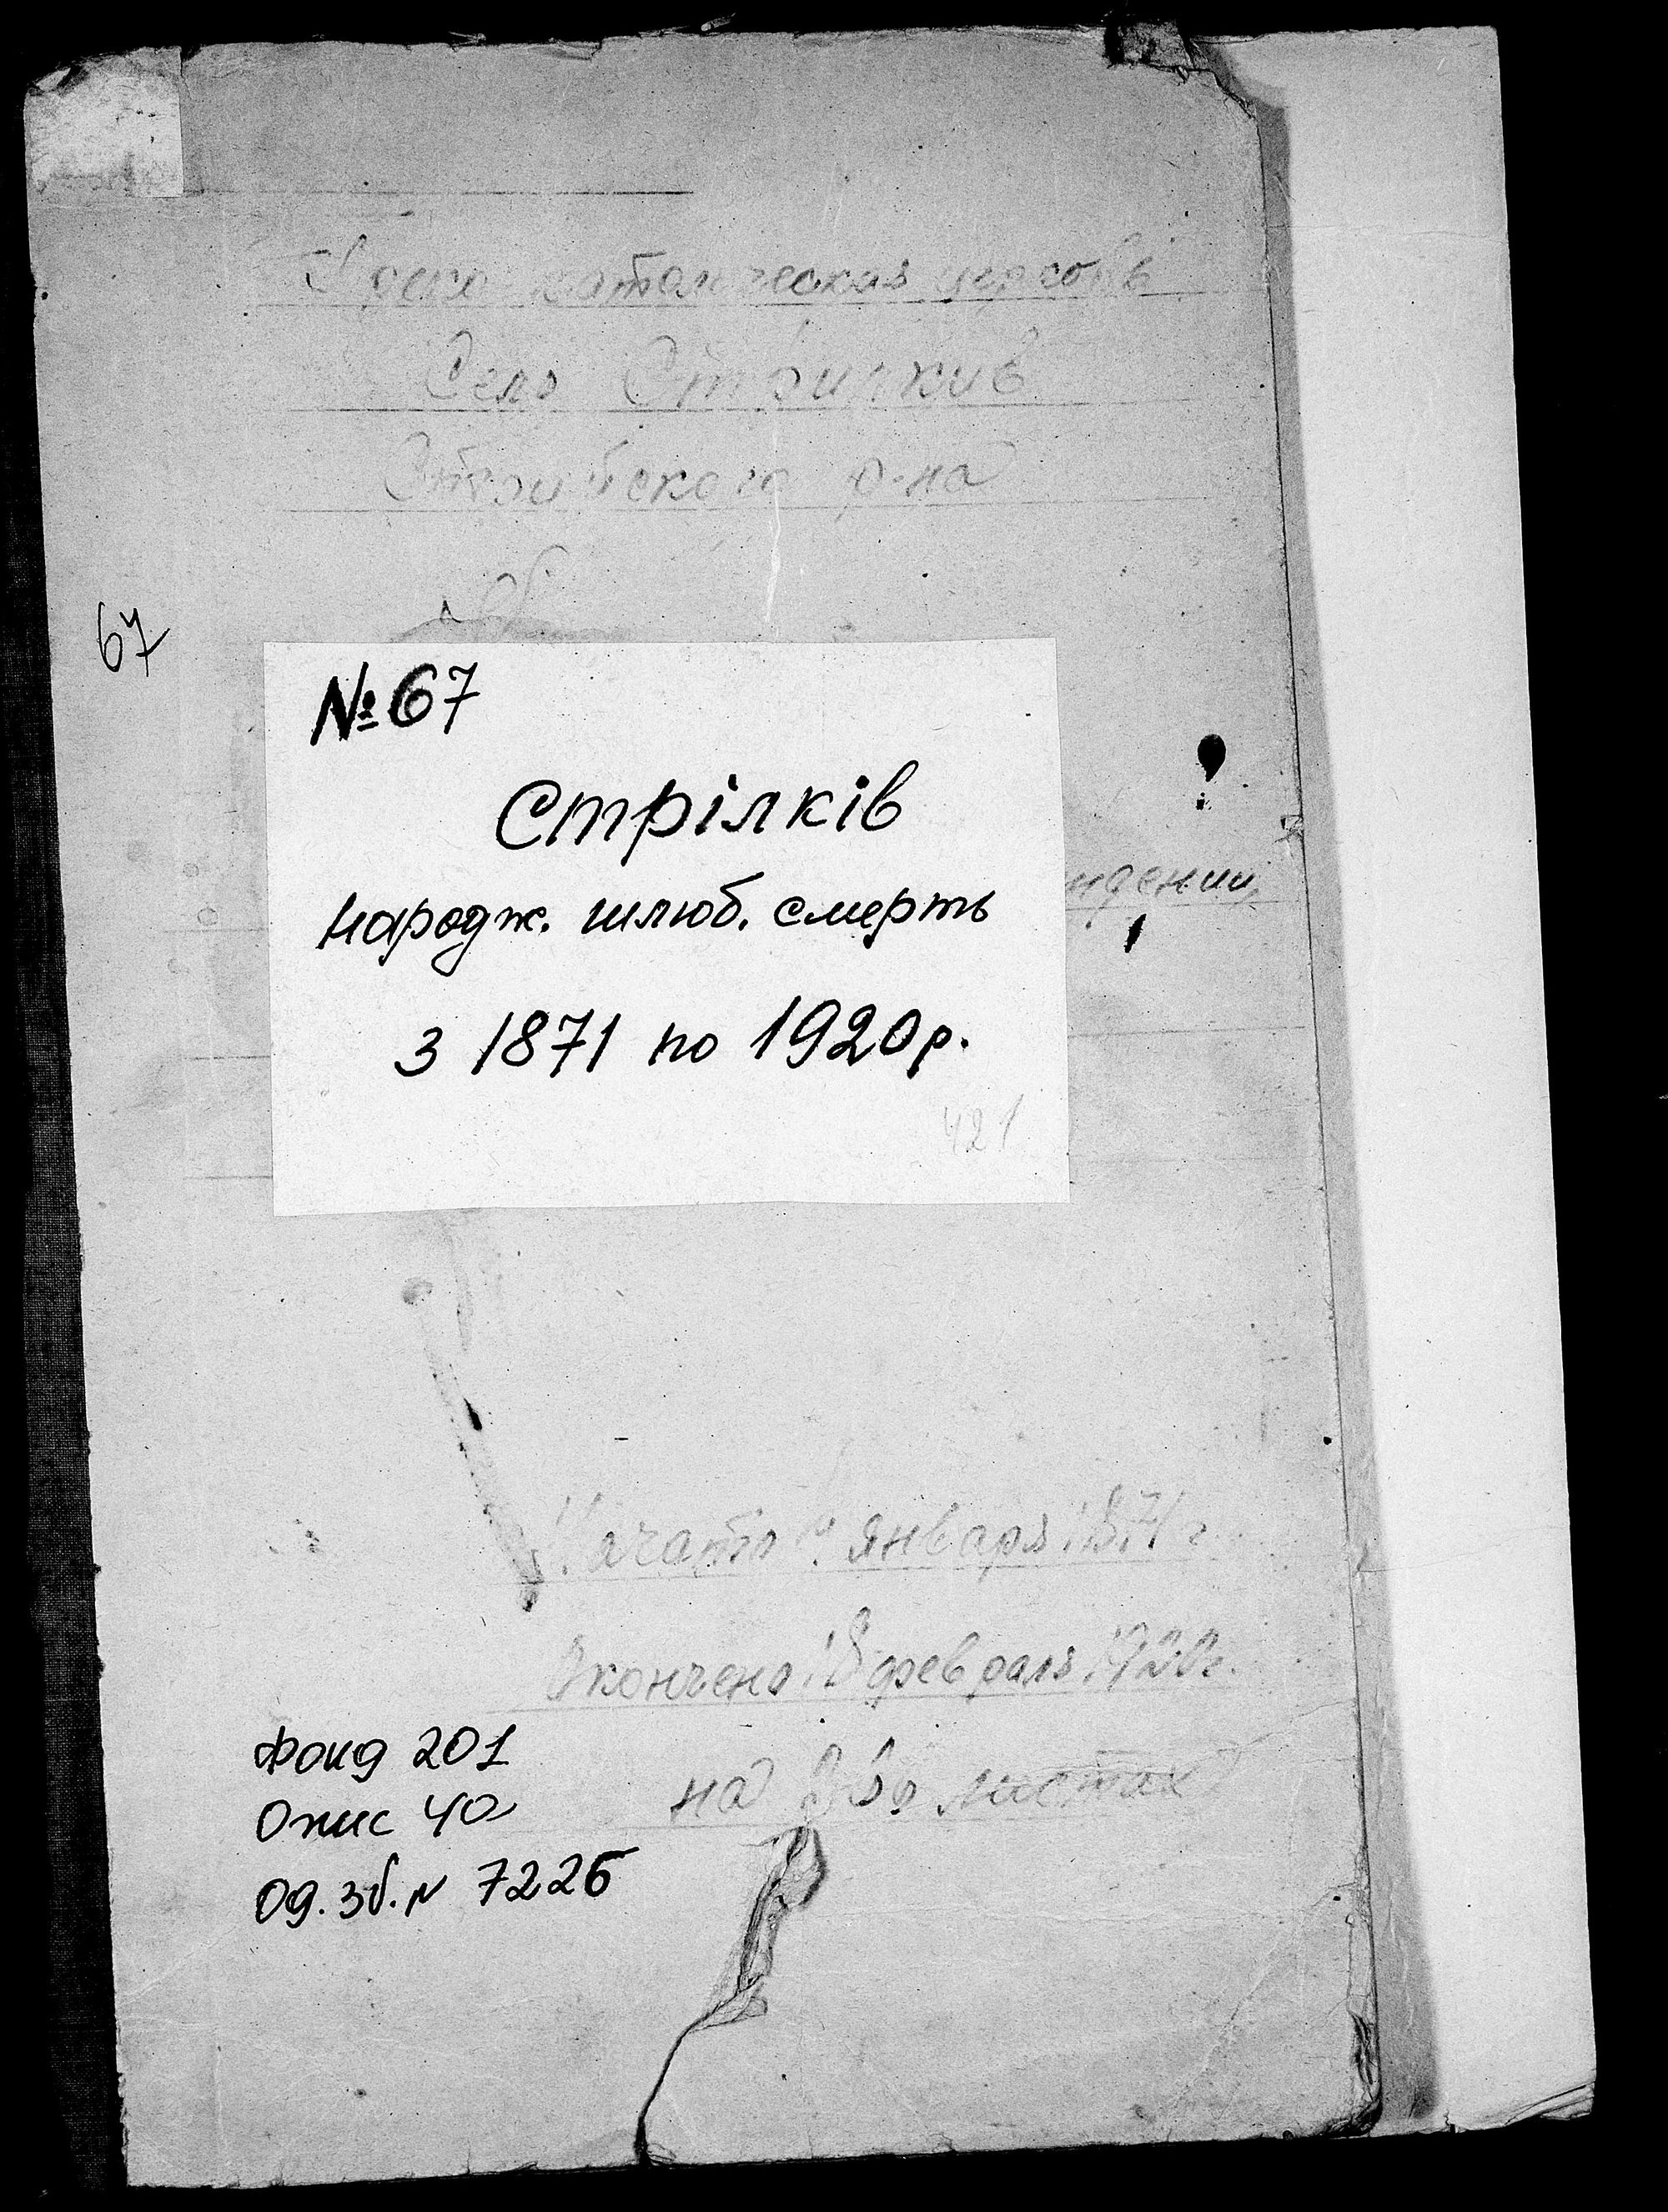 Греко католическая церковь
Село Стрилкив
Стрыйского р-на
67
№ 67
Стрілків
народж. шлюб. смерть
з 1871 по 1920р.
421
Начато января 1871 г.
Окончено 18 февраля 1920г.
на листах
Фонд 201
Опис 4а
Од. зб. № 7226